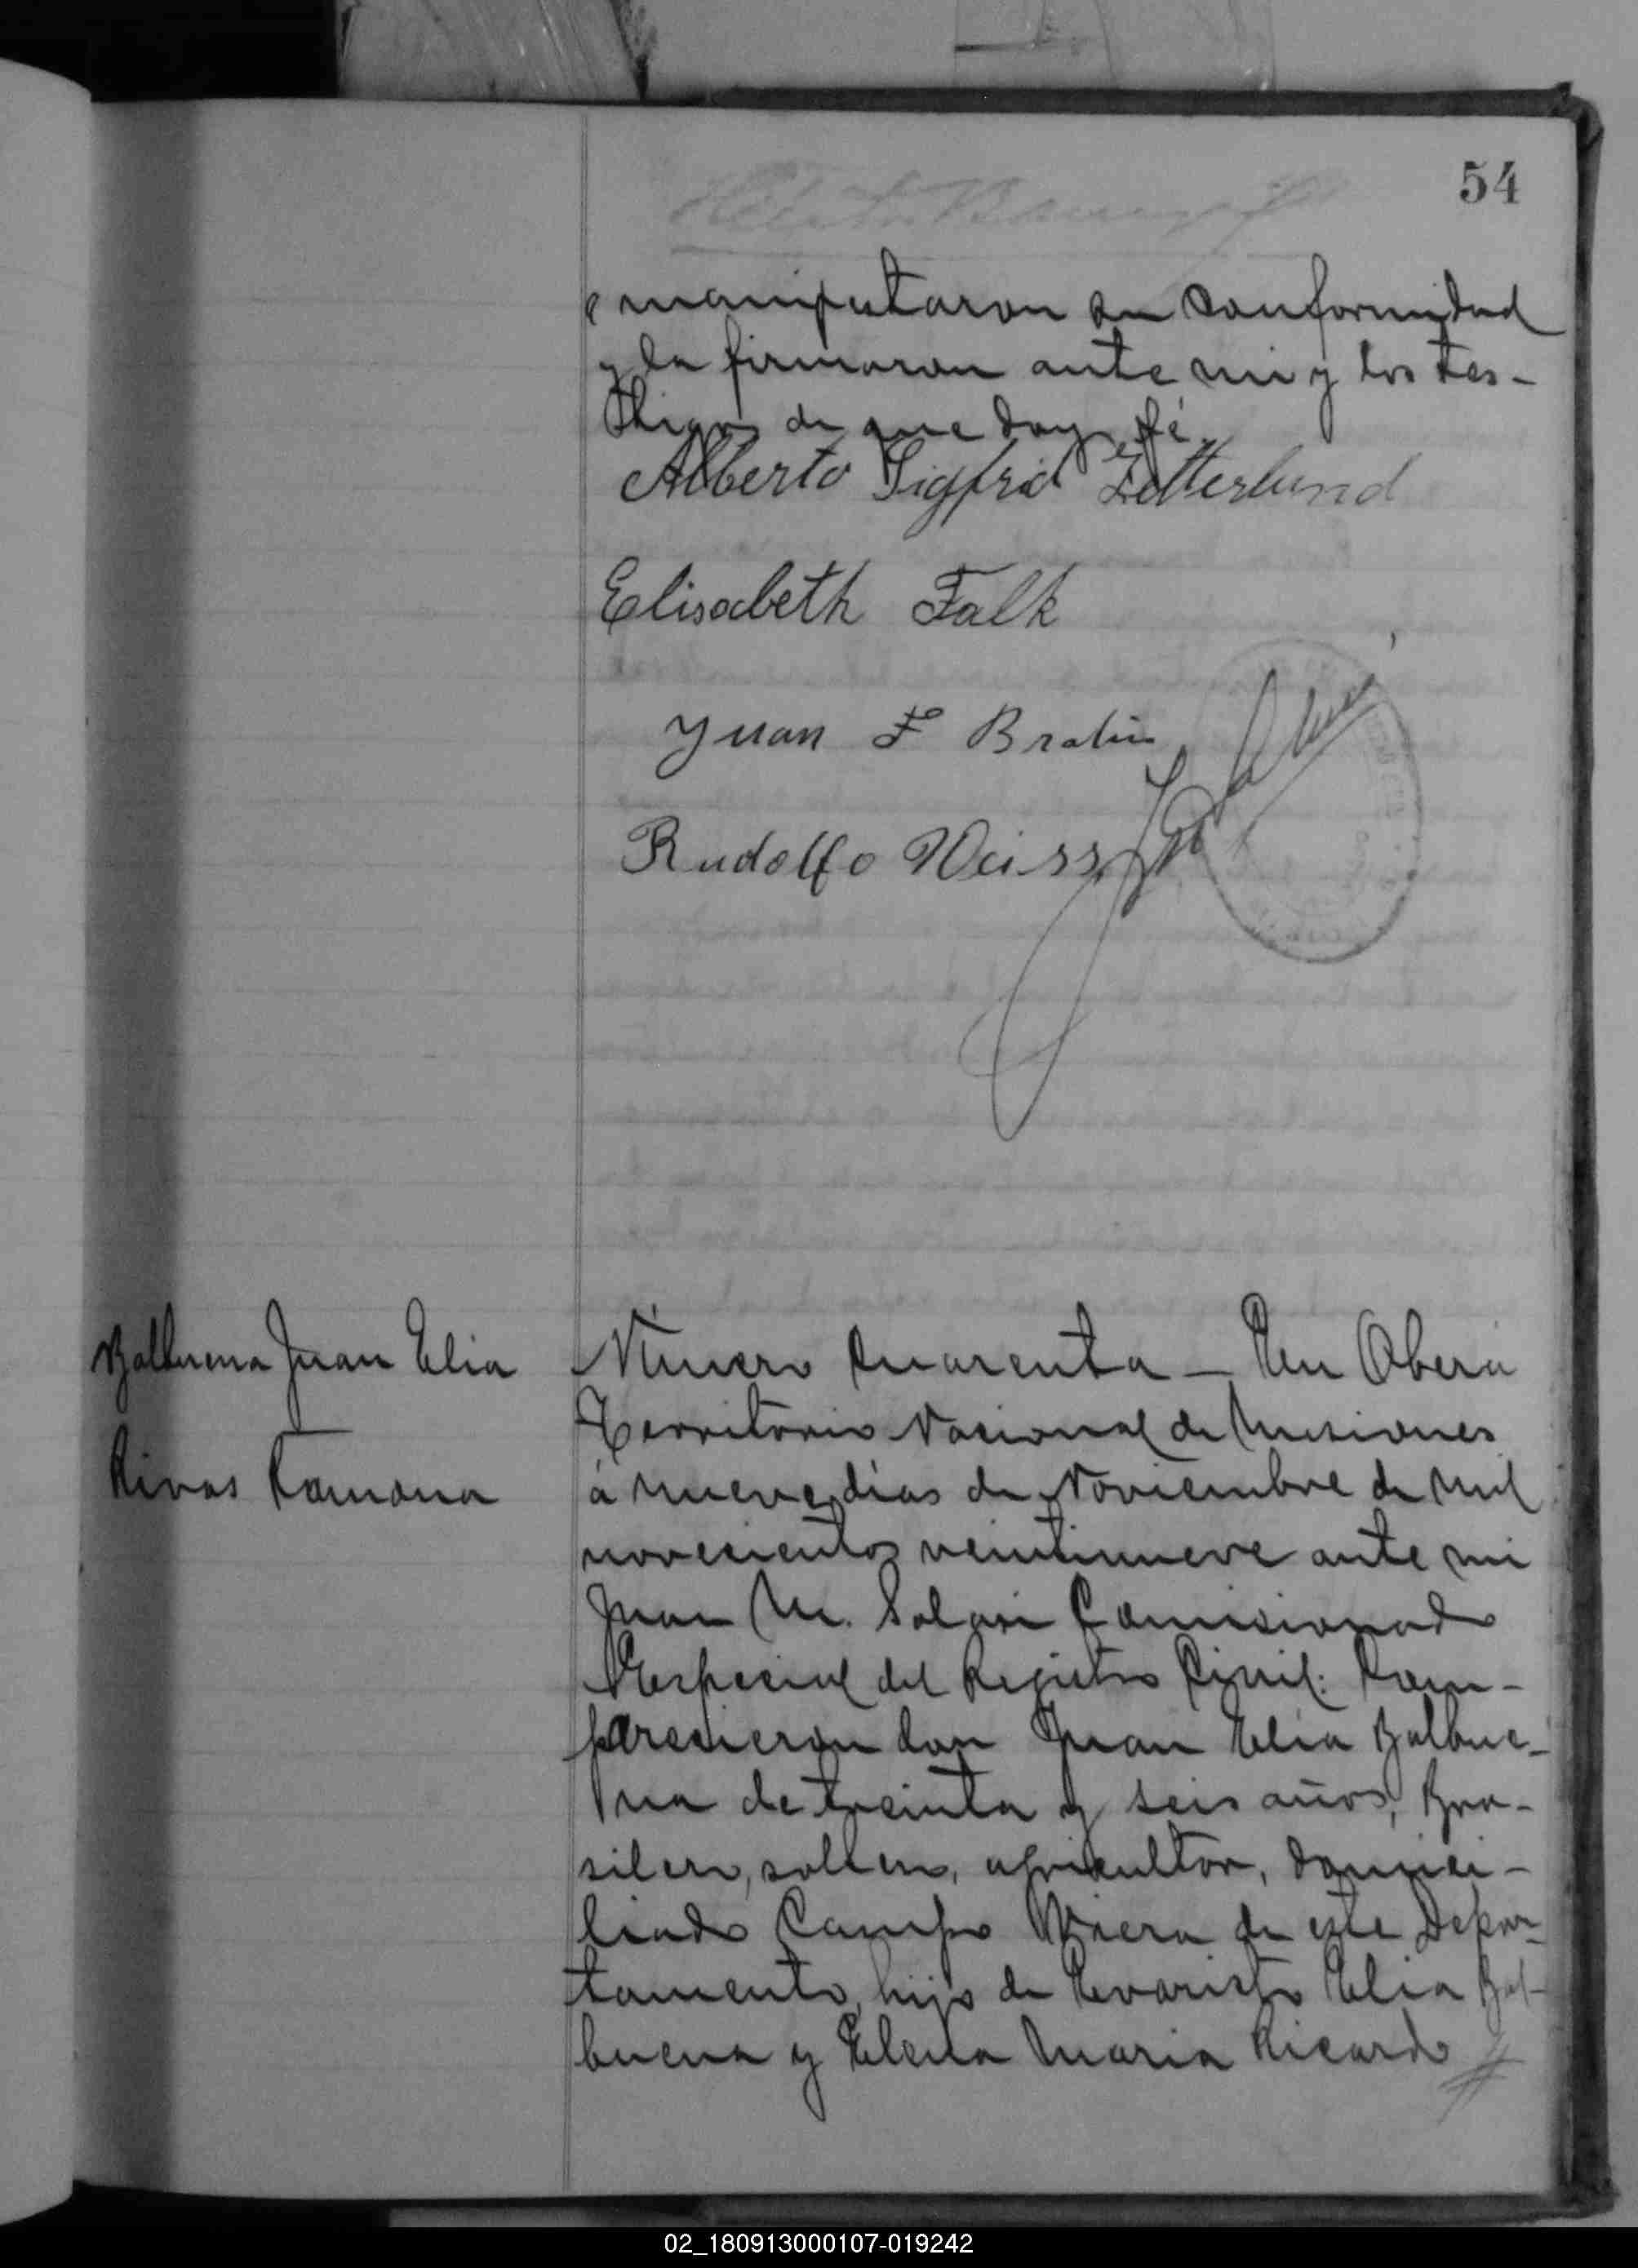 54
manifestaron su conformidad
y la firmaron ante mi y los tes-
tigos de que doy fé.
Alberto Sigfrid Zetterlund
Elisabeth Falk
Juan F Bratin
Rudolfo Weiss
Balbuena Juan Elia
Rivas Ramona
Número cuarenta - En Oberá
Territorio Nacional de Misiones
á nueve dias de Noviembre de mil
novecientos veintinueve ante mi
Juan M. Solari Comisionado
Especial del Registro Civil: Com-
parecieron don Juan Elia Balbue-
na de treinta y seis años, Bra-
silero, soltero, agricultor, domici-
liado Campo Viera de este Depar-
tamento, hijo de Evaristo Elia Bal-
buena y Elena Maria Ricardo
02_180913000107-019242